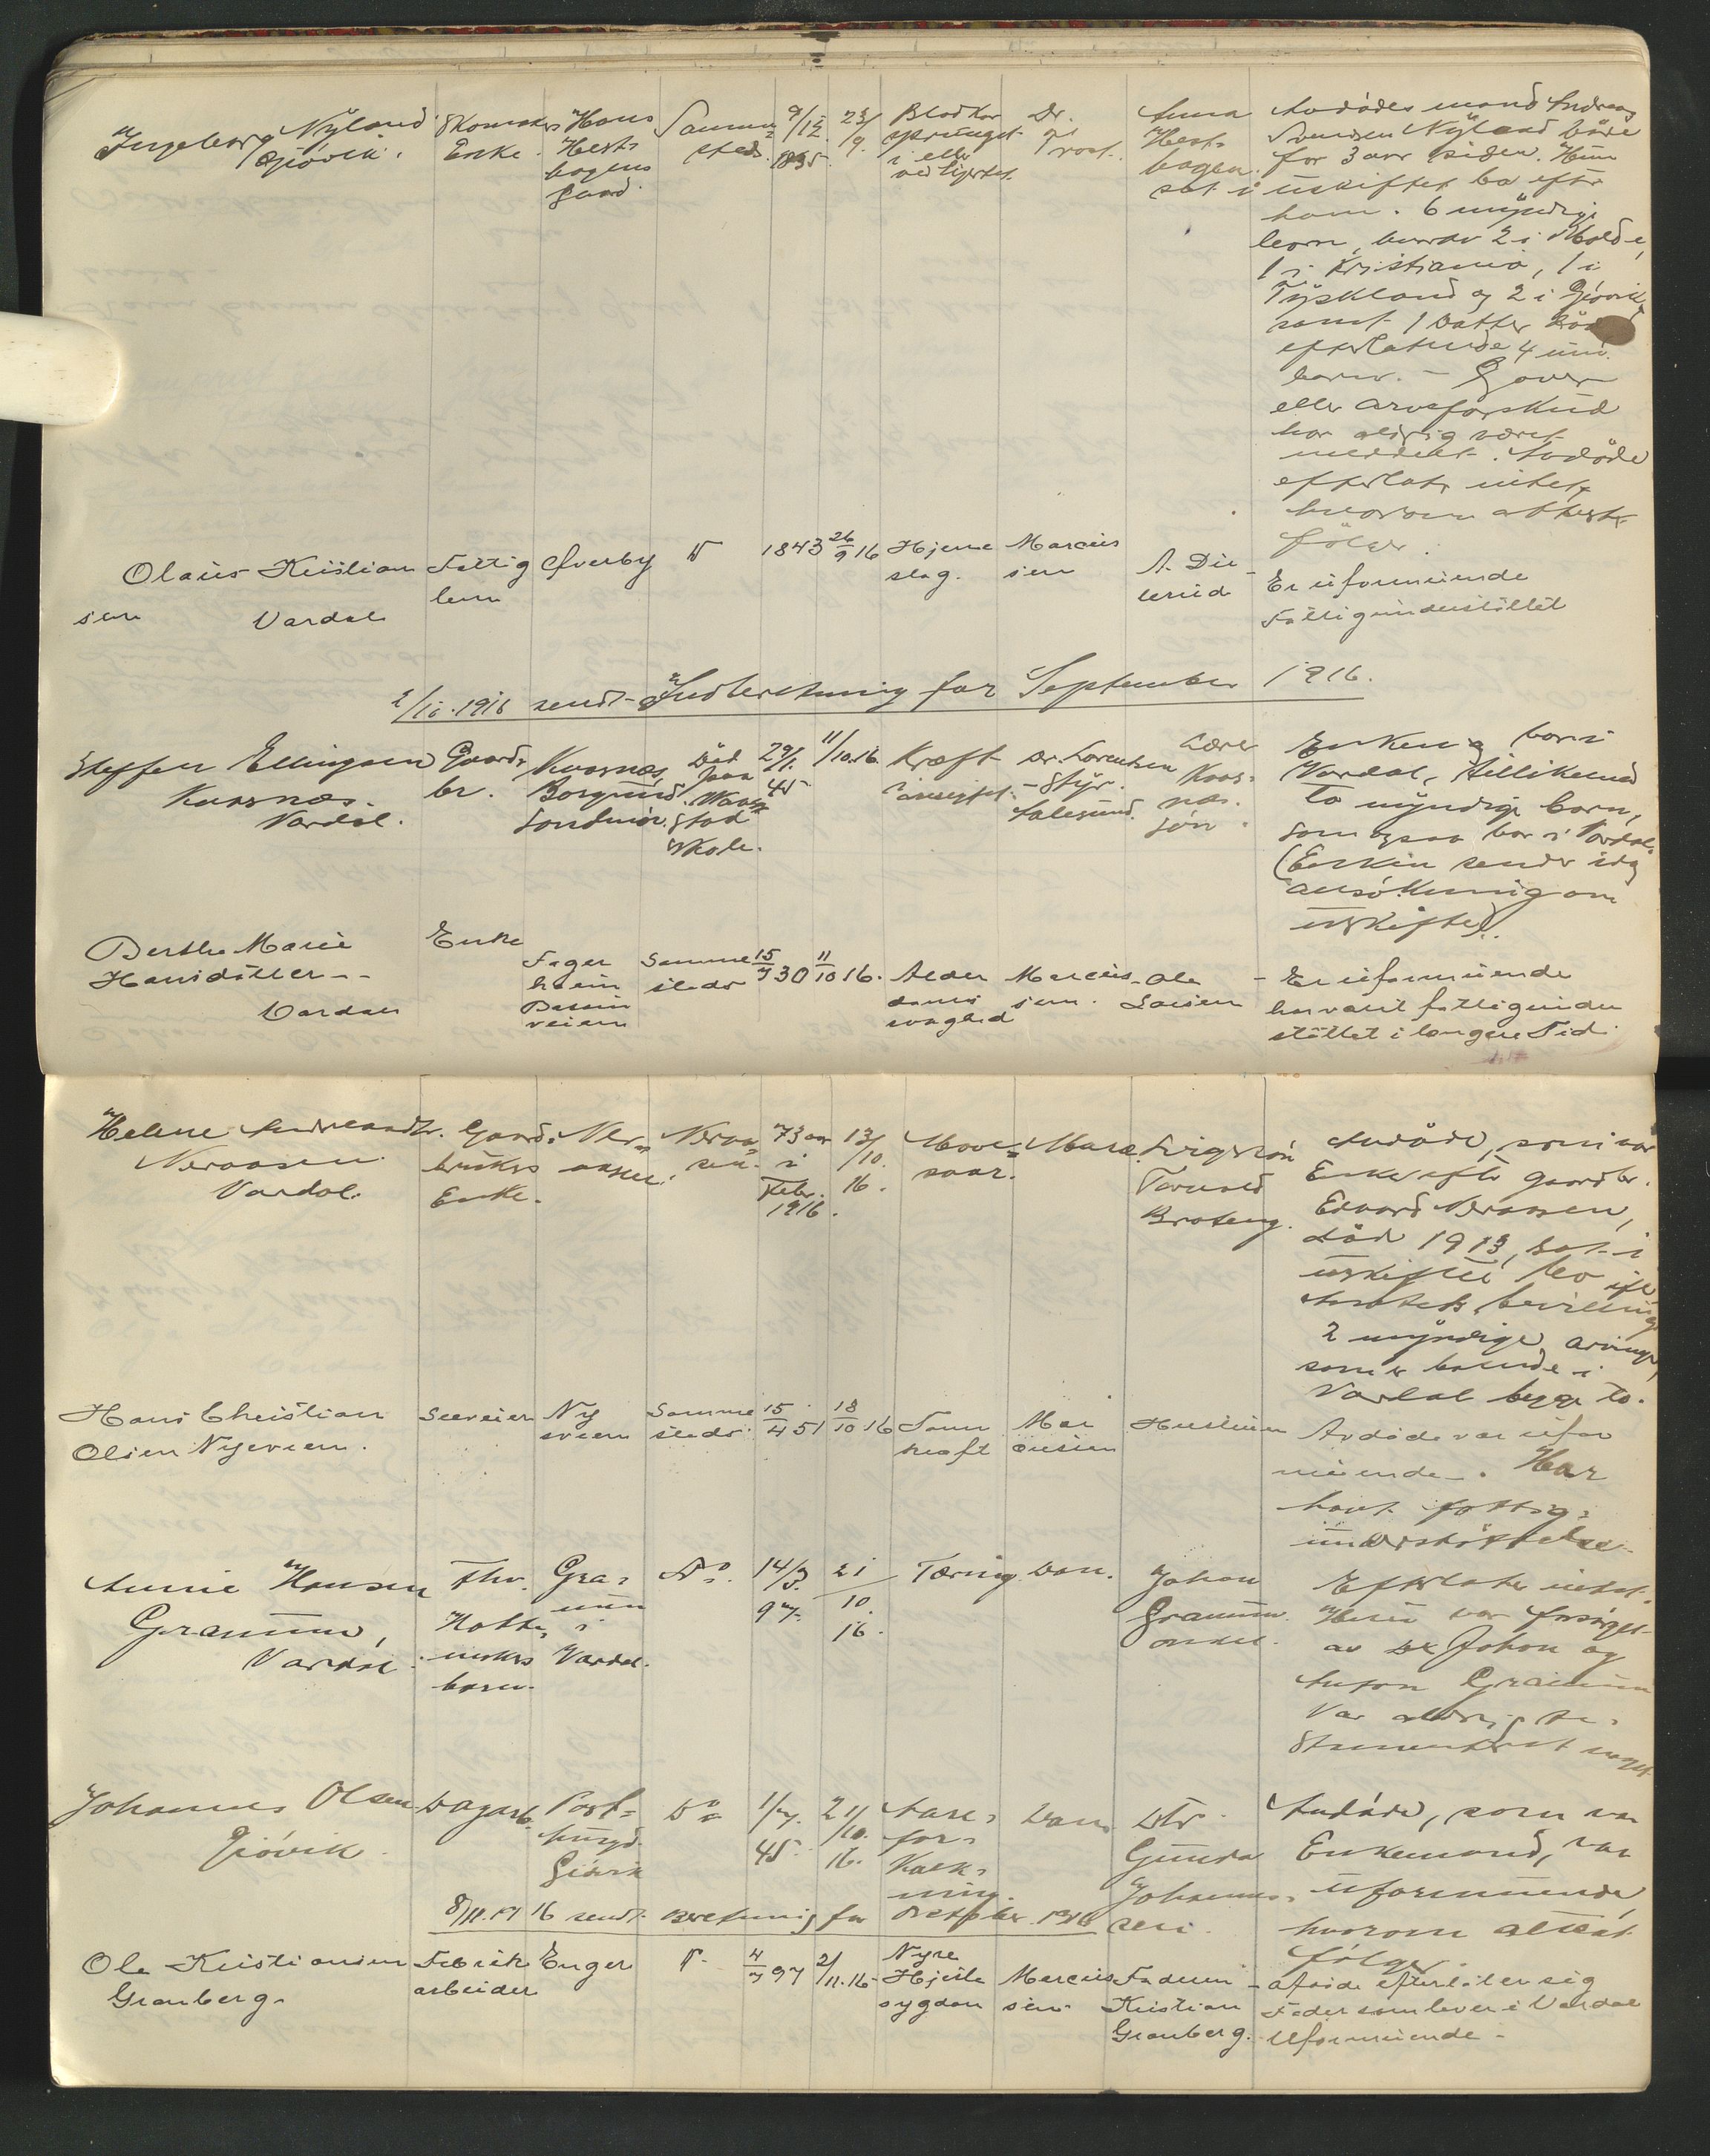 Ingeborg Nÿland
Gjövik.
Skomakers
Enke.
Hans
Hests
hagens
gaard.
Samme
steds.
9/12
1835
23/
9.
Blodkar
sprunget
i eller
ved hjertet
Dr.
Prost.
Anna
Hest=
hagen.
sat i
Avdödes mand Andreas
Svendsen Nÿland döde
for 3 aar siden. Hun
uskiftet bo efter
ham. 6 mÿndige
börn, hvorav 2 i Molde,
1 i Kristiania, 1 i
Tÿskland og 2 i Gjövik,
samt 1 datter död
efterlatende 4 um.
barn. - Gaver
eller arveforskud
har aldrig været
meddelt. Avdöde
efterlater intet,
hvorom attest
fölger.
Olaus Kristian
sen
Vardal
Fattig
lem
Överby
D
1843
26/9 16
Hjerne
slag.
Marcus
sen
A. Die
serud
Er uformuende
Fattigunderstöttet
2/10.1916 sendt Indberetning for September 1916.
Steffen Ellingsen
Kaarnæs.
Vardal.
Gaard=
br.
Kaarnæs,
Borgund.
Söndmör.
Ved
Stad
Skole.
29/1.
45
11/10.16.
Kræft
i ansigtet.
Dr. Lorentzen
- Stÿr.
Aalesund.
Lærer
Kaar=
næs.
sön.
Enken bor i
Vardal, tillikemed
to mÿndige barn,
som ogsaa bor i Vardal.
(Enken sender idag
ansökning om
uskifte).
Berthe Marie
Hansdatter - -
Vardal
Enke
Fager
heim
veien
Samme
steds
15/7 30
11/10 16.
Alder
doms
svaghed
Marcus
sen.
Ole
Larsen
- Er uformuende
har vært fattigunder
stöttet i længere Tid.
Helene Andreasdtr.
Neraasen
Vardal.
Gaard=
brukers
Enke.
Ner=
aasen.
Neraa=
sen.
73 aar
i
Febr.
1916.
13/
/10.
16.
Mave=
saar.
Marc.
Svigersön
Torvald
Brateng.
Avdöde, som var
Enke efter gaardbr.
Edvard Neraasen,
död 1913, sat i
uskiftet bo ifl.
Amtets bevilling
2 mÿndige arvinger,
som er boende i
Vardal begge to.
Hans Christian
Olsen Nyeveien.
Ny
eveien
Samme
steds
15/4 51
18/10 16
kræft
Mar
cusen
Hustruen
Avdöde var ufor
muende. Har
havt fattig=
understöttelse.
Annie Hansen
Gramum,
Vardal.
Fhv.
barn.
Gra=
mum
i
Vardal.
Do.
14/3.
97.
21/
10.
16.
Tæring
Dan.
Johan
Gramum.
onkel.
Efterlater intet.
Hun var forsörget
av Johan og
Anton Gramum
Var aldrig te=
stamenteret noget.
Johannes Olsen
Gjövik.
Dagarb.
Gjövik
Do
1/7.
45.
21/
/10.
16.
Aare=
for=
kalk=
ning.
Dan.
Dtr.
Gunda
Johannes=
sen.
Avdöde, som var
Enkemand, var
uformuende,
hvorom attest
fölger.
8/11.1916 sendt Beretning for Oktober 1916
Ole Kristiansen
Granberg.
Fabrik
arbeider
Enger
4/7 97
2/11.16
Nyre
Hjerte
sygdom
Marcus
sen.
Faderen
Kristian
Granberg.
- Afdöde efterlater sig
Fader som lever i Vardal
Uformuende -